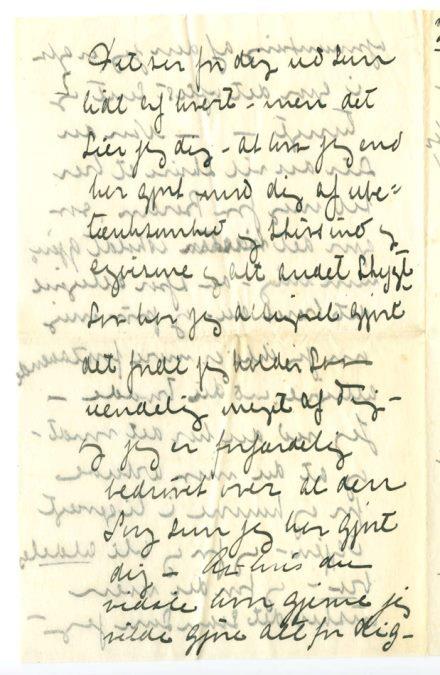 Det ser for dig ud som
lidt af hvert – men det
siger jeg dig – at hvor jeg end
har gjort mod dig af ube=
tænksomhed og
egoisme og alt andet Stygt
Saa har jeg alligevel gjort
det fordi jeg holder Saa
uendelig meget af Dig –
og jeg er forfærdelig
bedrøvet over al den
Sorg som jeg har gjort
dig – hvis du
vidste hvor gjerne jeg
vilde gjøre alt for dig –